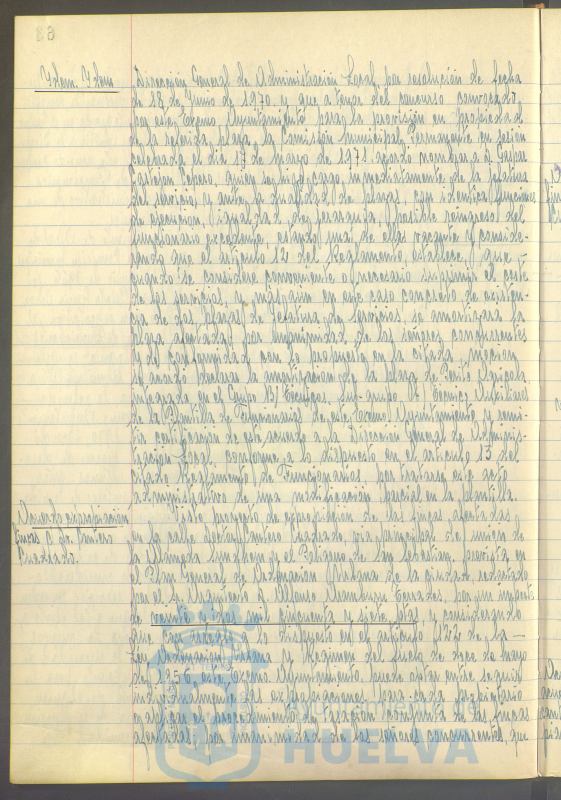 63
Idem. Idem
Dirección General de Administración Local, por resolución de fecha
de 18 de Junio de 1970, y que a tenor del concurso convocado
por este Excmo. Ayuntamiento para la provisión en propiedad
de la referida plaza, la Comisión Municipal Permanente en sesión
celebrada el día 17 de marzo de 1971 acordó nombrar a Gaspar
Castejón Cepero, quien se hizo cargo inmediatamente de la Jefatura
del servicio, y ante la dualidad de plazas, con identica funciones
de ejecución, igualdad de jerarquía y posible reingreso del
funcionario excedente, estando una de ellas vacante y conside-
rando que el artículo 12 del Reglamento establece, que
cuando se considere conveniente o necesario suprimir el coste
de los servicios, y máxime en este caso concreto de existen-
cia de dos plazas de Jefatura de Servicios, se amortizará la
plaza afectada, por unanimidad de los señores concurrentes
y de conformidad con lo propuesto en la citada moción,
se acordó declarar la amortización de la plaza de Perito Agrícola
integrada en el Grupo B/ Técnicos, Sub-grupo b/ Técnicos Auxiliares
de la Plantilla de Funcionarios de este Excmo. Ayuntamiento, y remi-
tir certificación de este acuerdo a la Dirección General de Adminis-
tración Local, conforme a lo dispuesto en el artículo 13 del
citado Reglamento de Funcionarios, por tratarse este acto
administrativo de una modificación parcial en la plantilla.
Acuerdo expropiación
fincas C. Dr. Cantero
Cuadrado.
Visto proyecto de expropiación de las fincas afectadas
en la calle Doctor Cantero Cuadrado, vía principal de unión de
la Alameda Sundheim y el Polígono de San Sebastián, prevista en
el Plan General de Ordenación Urbana de la ciudad, redactado
por el Sr. Arquitecto D. Alfonso Aramburu Terrades, por un importe
de veinte y dos mil cincuenta y siete ptas. y considerando
que con arreglo a lo dispuesto en el artículo 122 de la
Ley Ordenación Urbana y Régimen del Suelo de doce de mayo
de 1956, este Excmo. Ayuntamiento puede optar entre seguir
individualmente las expropiaciones para cada propietario
o aplicar el procedimiento de tasación conjunta de las fincas
afectadas, por unanimidad de los señores concurrentes, que
Ayuntamiento de
HUELVA